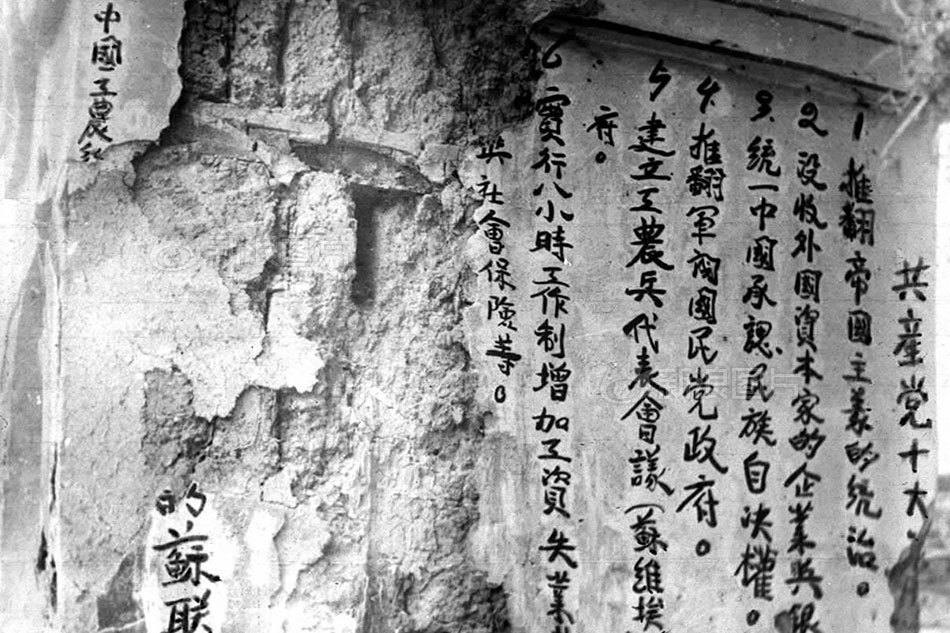 共産党十大
1 推翻帝國主義的統治。
2 没收外國資本家的企業與銀
3 統一中國承認民族自决權。
4 推翻軍阀國民党政府。
5 建立工農兵代表會議(蘇維埃
府。
6 實行八小時工作制增加工資失業
與社會保險等。
的蘇聯
中國工農紅